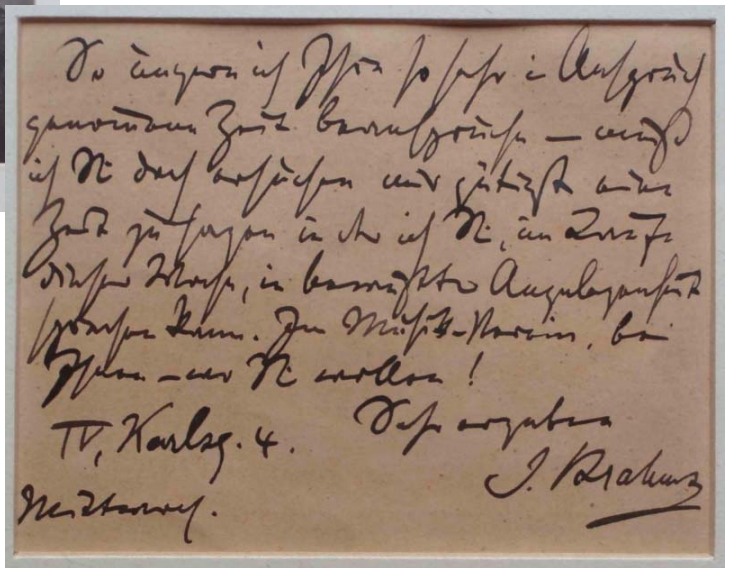 So ungern ich Ihre so sehr in Anspruch
genommene Zeit beanspruche — muß
ich Sie doch ersuchen mir gütigst eine
Zeit zu sagen in der ich Sie, im Laufe
dieser Woche, in bewußter Angelegenheit
sprechen kann. Im Musik-Verein, bei
Ihnen — wo Sie wollen!
IV, Karlsg. 4. Sehr ergeben
J. Brahms
Mittwoch.